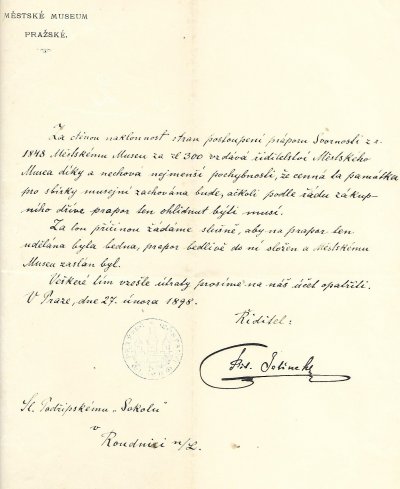 MĚSTSKÉ MUSEUM
PRAŽSKÉ.
Za ctěnou náklonnost stran postoupení práporu Svornosti z r.
1848 Městskému Museu za zl 300 vzdává ředitelství Městského
Musea díky a nechová nejmenší pochybnosti, že cenná ta památka
pro sbírky musejní zachována bude, ačkoli podle řádu zákup-
ního dříve prapor ten ohlédnut býti musí.
Za tou příčinou žádáme slušně, aby na prapor ten
udělána byla bedna, prapor bedlivě do ní složen a Městskému
Museu zaslán byl.
Veškeré tím vzešlé útraty prosíme na náš účet opatřiti.
V Praze, dne 27. února 1898.
Ředitel:
Sl. Podřipskému „Sokolu"
v
Roudnici n/L.